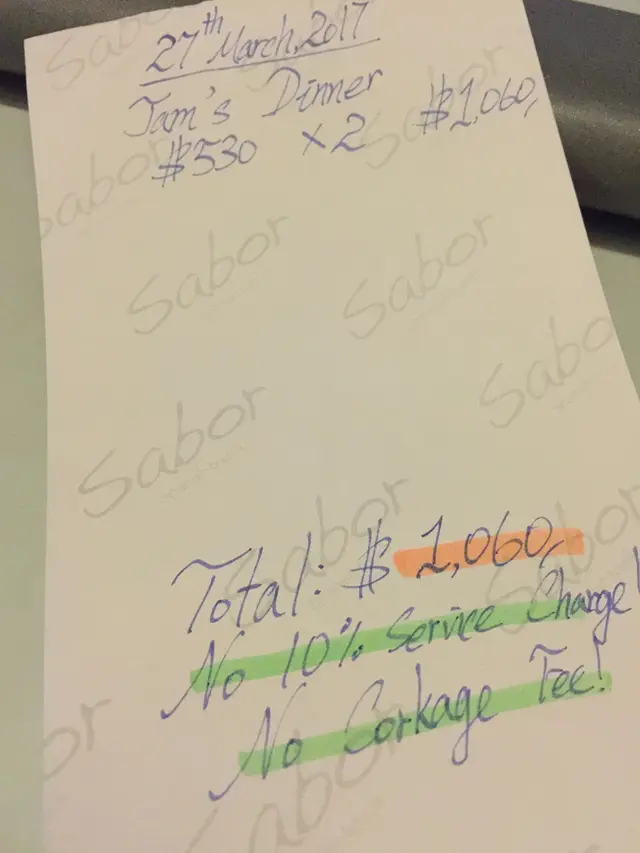 27th March, 2017
Jam's Dinner
$530 x 2 $1,060,
Sabor
Sabor
Sabor
Sabor
Sabor
Sabor
Sabor
Sabor
Total: $ 1,060,
No 10% Service Charge!
No Corkage Fee!
Sabor